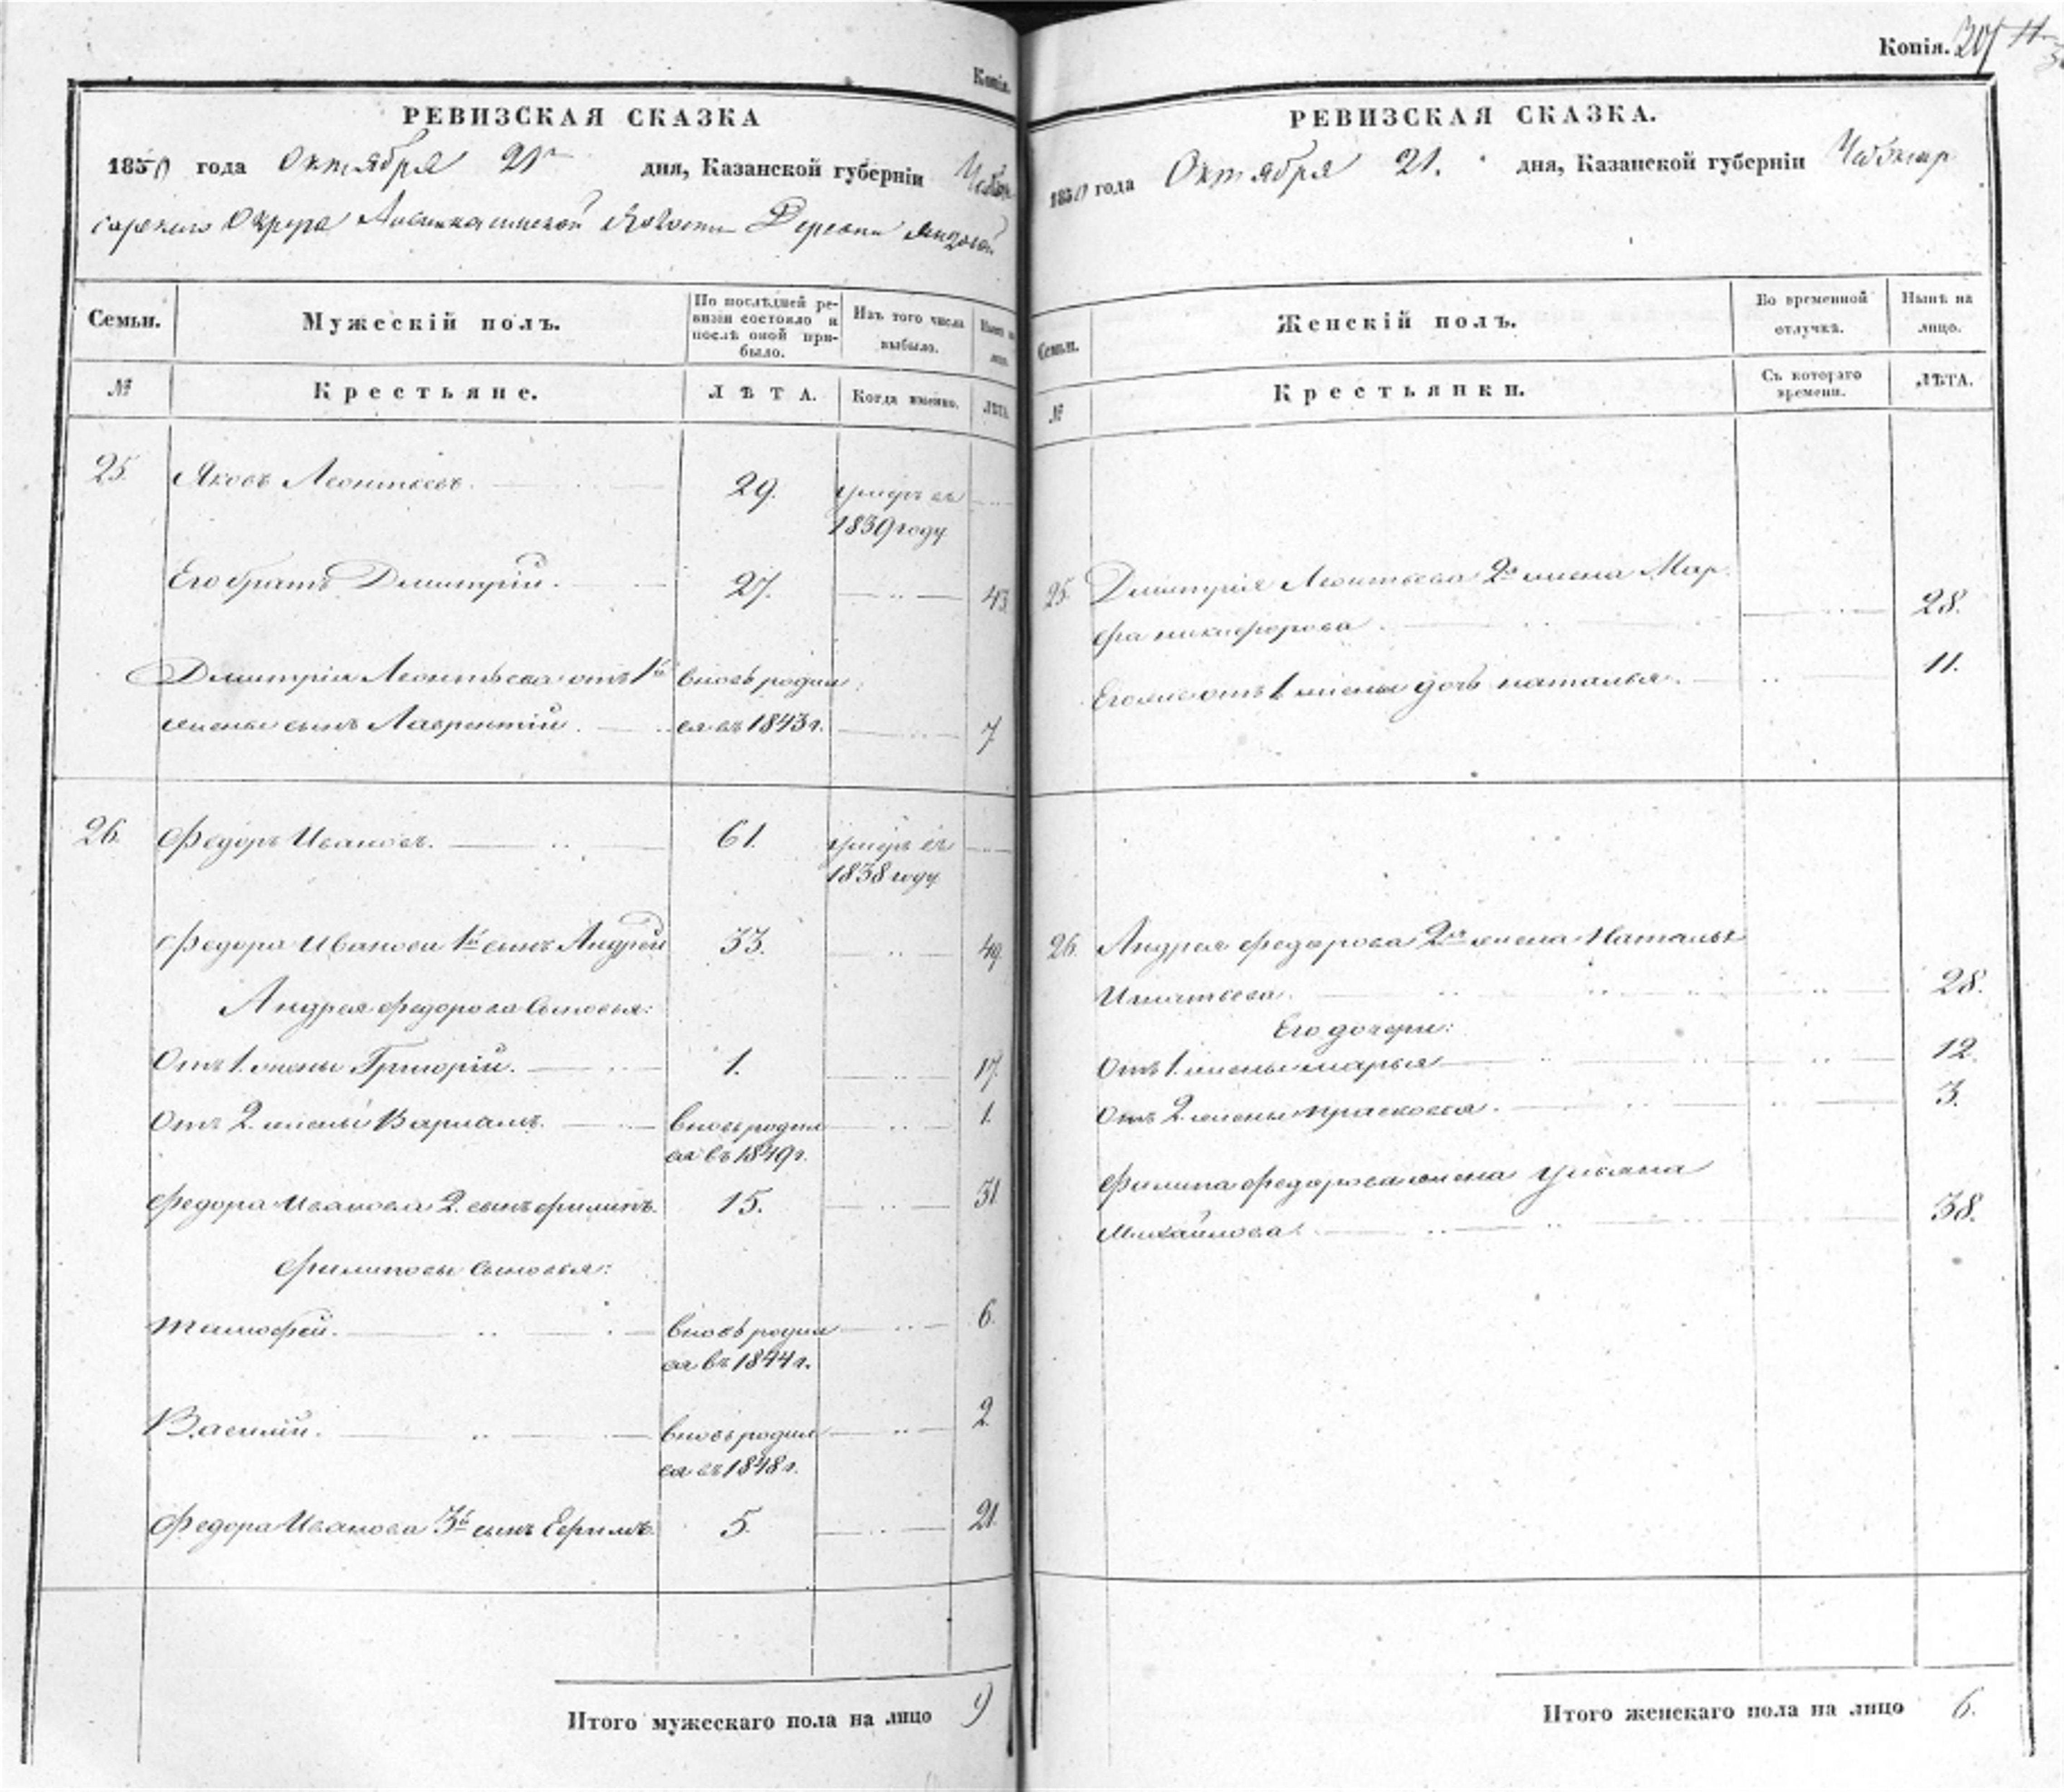 Копія.
РЕВИЗСКАЯ СКАЗКА
1850 года Октября 21го дня, Казанской губерніи Чебок
сарскаго Округа волости Деревни
Семьи.
Мужескій полъ.
По послѣдней ре-
визіи состояло и
послѣ оной при-
было.
Изъ того числа
выбыло.
Нынѣ на
лицо.
№
Крестьяне.
ЛѢТА.
Когда именно.
ЛѢТА.
25. Яковъ Леонтьевъ. 29. умеръ въ
1839 году
Его братъ Дмитрій. 27. 43.
Дмитрія Леонтьева отъ 1й вновь родил
жены сынъ Лаврентій. ся въ 1843 г. 7.
26. Федоръ Ивановъ. 61. умеръ въ
1838 году
Федора Иванова 1й сынъ Андрей 33. 49.
Андрея Федорова сыновья:
Отъ 1. жены Григорій. 1. 17.
Отъ 2. жены Варламъ. вновь родил 1.
ся въ 1849 г.
Федора Иванова 2. сынъ Филипъ. 15. 31.
Филиповы сыновья:
Тимофей. вновь родил 6.
ся въ 1844 г.
Василій. вновь родил 2.
ся въ 1848 г.
Федора Иванова 3й сынъ Ефримъ. 5. 21.
Итого мужескаго пола на лицо 9
Копія. 207
РЕВИЗСКАЯ СКАЗКА.
1850 года Октября 21. дня, Казанской губерніи Чебоксар
Семьи.
Женскій полъ.
Во временной
отлучкѣ.
Нынѣ на
лицо.
№
Крестьянки.
Съ котораго
времени.
ЛѢТА.
25. Дмитрія Леонтьева 2я жена Мар
фа Никифорова. 28.
Его же отъ 1. жены дочь Наталья. 11.
26. Андрея Федорова 2я жена Наталья
Игнатьева. 28.
Его дочери:
Отъ 1. жены Марья 12.
Отъ 2. жены Прасковья. 3.
Филипа Федорова жена Ульяна
Михайлова. 38.
Итого женскаго пола на лицо 6.